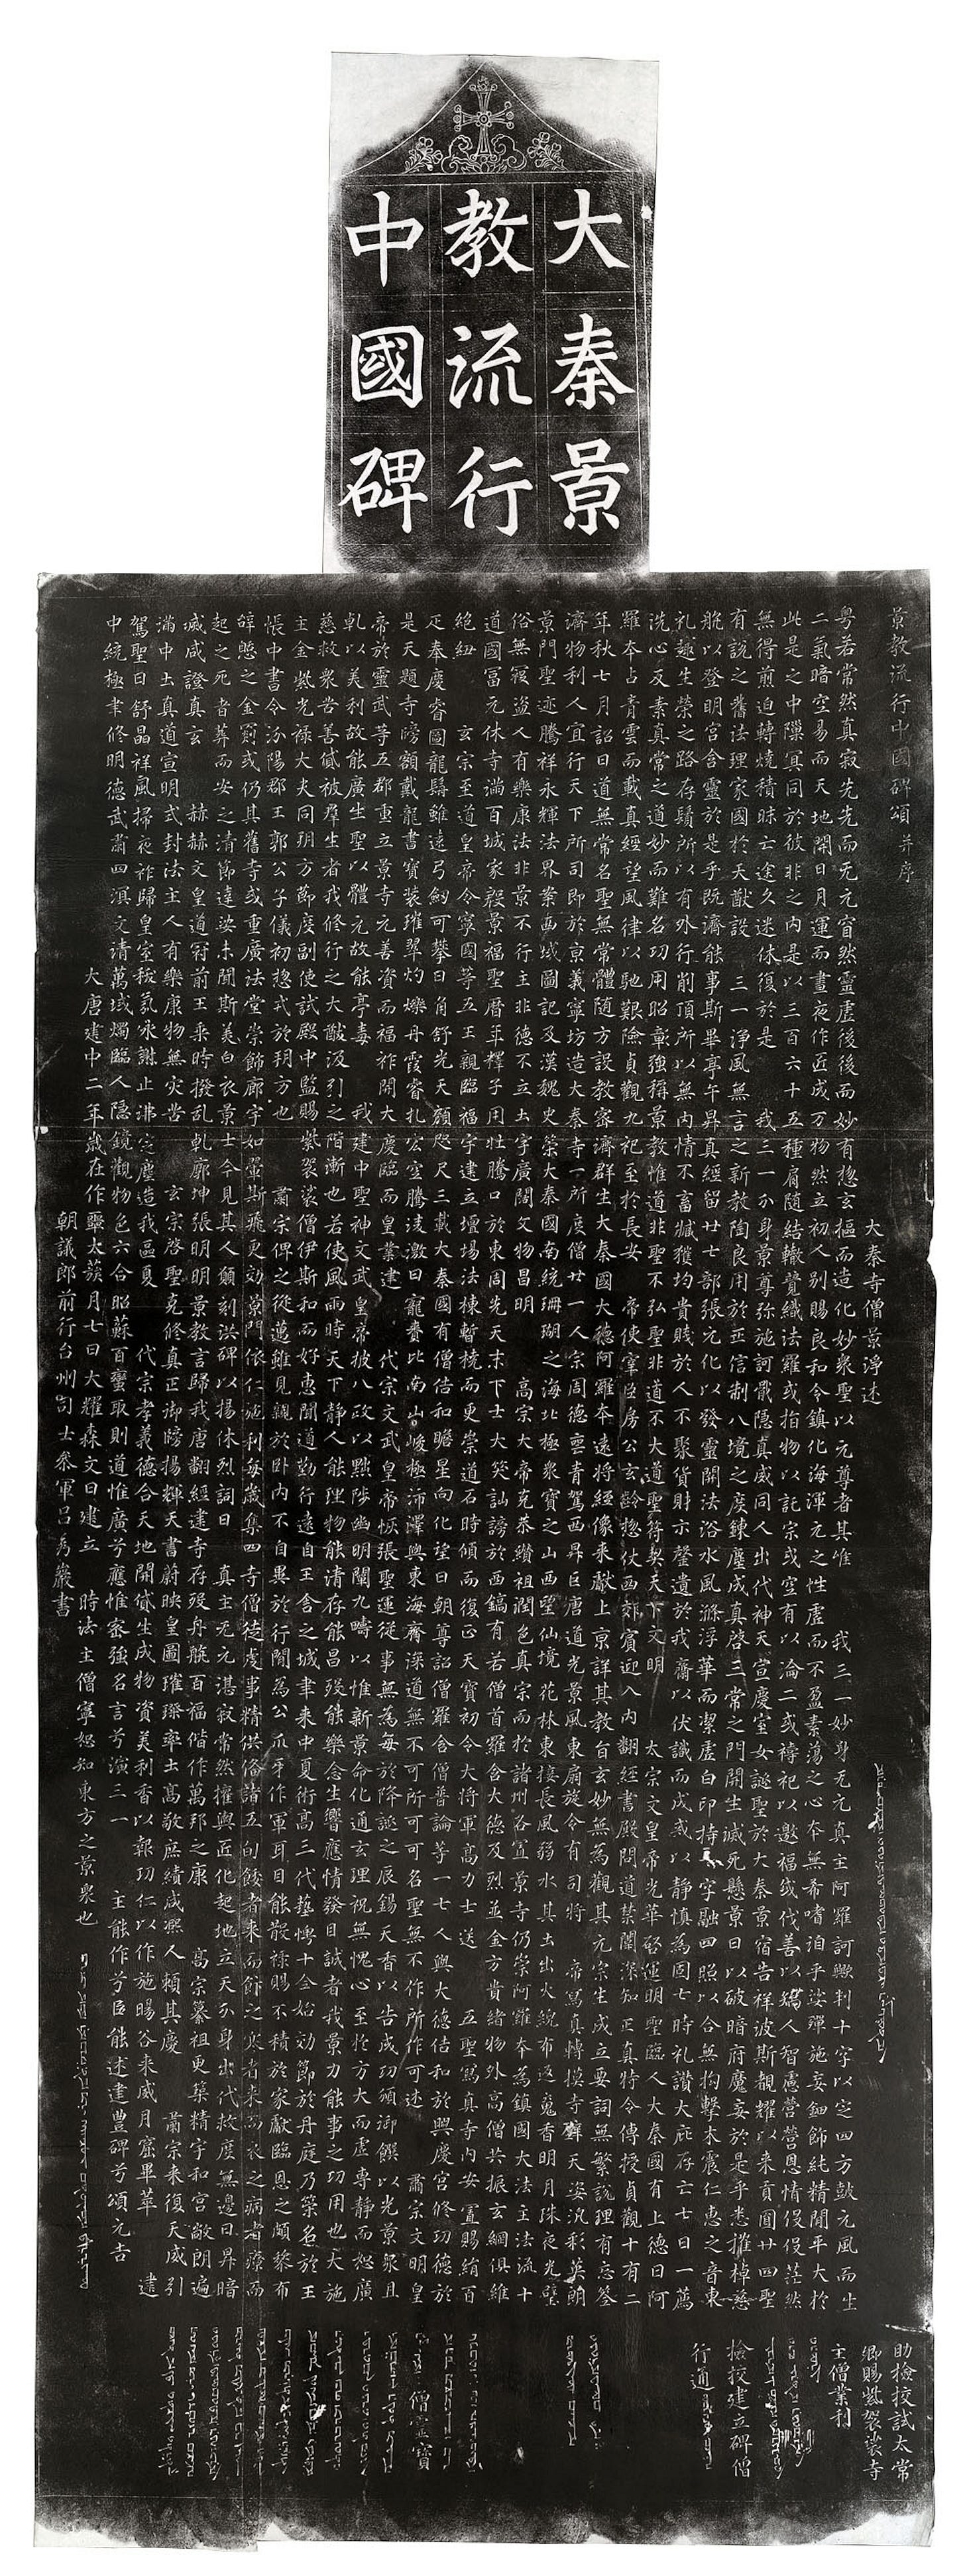 大秦景
教流行
中國碑
景教流行中國碑頌 并序
大秦寺僧景淨述
粵若常然真寂先先而无元窅然靈虛後後而妙有惣玄摳而造化妙衆聖以元尊者其唯 我三一妙身无元真主阿羅訶歟判十字以定四方鼓元風而生
二氣暗空易而天地開日月運而晝夜作匠成万物然立初人别賜良和令鎮化海渾元之性虛而不盈素蕩之心本無希嗜洎乎娑殫施妄鈿飾純精閒平大於
此是之中隟冥同於彼非之內是以三百六十五種肩隨結轍競織法羅或指物以託宗或空有以淪二或禱祀以邀福或伐善以矯人智慮營營恩情役役茫然
無得煎迫轉燒積昧亡途久迷休復於是 我三一分身景尊弥施訶戢隱真威同人出代神天宣慶室女誕聖於大秦景宿告祥波斯覩耀以來貢圓廿四聖
有說之舊法理家國於大猷設 三一淨風無言之新教陶良用於正信制八境之度鍊塵成真啓三常之門開生滅死懸景日以破暗府魔妄於是乎悉摧棹慈
航以登明宮含靈於是乎既濟能事斯畢亭午昇真經留廿七部張元化以發靈關法浴水風滌浮華而潔虛白印持十字融四照以合無拘擊木震仁惠之音東
礼趣生榮之路存鬚所以有外行削頂所以無內情不畜臧獲均貴賤於人不聚貨財示罄遺於我齋以伏識而成戒以靜慎為固七時礼讚大庇存亡七日一薦
洗心反素真常之道妙而難名功用昭彰強稱景教惟道非聖不弘聖非道不大道聖符契天下文明 太宗文皇帝光華啓運明聖臨人大秦國有上德曰阿
羅本占青雲而載真經望風律以馳艱險貞觀九祀至於長安 帝使宰臣房公玄齡惣仗西郊賓迎入內翻經書殿問道禁闈深知正真特令傳授貞觀十有二
年秋七月詔曰道無常名聖無常體隨方設教密濟群生大秦國大德阿羅本遠將經像來獻上京詳其教旨玄妙無為觀其元宗生成立要詞無繁說理有忘筌
濟物利人宜行天下所司即於京義寧坊造大秦寺一所度僧廿一人宗周德喪青駕西昇巨唐道光景風東扇旋令有司將 帝寫真轉摸寺壁天姿汎彩英朗
景門聖迹騰祥永輝法界案西域圖記及漢魏史策大秦國南統珊瑚之海北極衆寶之山西望仙境花林東接長風弱水其土出火綄布返魂香明月珠夜光璧
俗無寇盜人有樂康法非景不行主非德不立土宇廣闊文物昌明 高宗大帝克恭纘祖潤色真宗而於諸州各置景寺仍崇阿羅本為鎮國大法主法流十
道國富元休寺滿百城家殷景福聖曆年釋子用壯騰口於東周先天末下士大笑訕謗於西鎬有若僧首羅含大德及烈並金方貴緒物外高僧共振玄網俱維
絕紐 玄宗至道皇帝令寧國等五王親臨福宇建立壇場法棟暫橈而更崇道石時傾而復正天寶初令大將軍高力士送 五聖寫真寺內安置賜絹百
疋奉慶睿圖龍髯雖遠弓劒可攀日角舒光天顏咫尺三載大秦國有僧佶和瞻星向化望日朝尊詔僧羅含僧普論等一七人與大德佶和於興慶宮修功德於
是天題寺牓額戴龍書寶裝璀翠灼爍丹霞睿扎宏空騰淩激日寵賚比南山峻極沛澤與東海齊深道無不可所可可名聖無不作所作可述 肅宗文明皇
帝於靈武等五郡重立景寺元善資而福祚開大慶臨而皇業建 代宗文武皇帝恢張聖運從事無為每於降誕之辰錫天香以告成功頒御饌以光景衆且
乹以美利故能廣生聖以體元故能亭毒 我建中聖神文武皇帝披八政以黜陟幽明闡九疇以惟新景命化通玄理祝無愧心至於方大而虛專靜而恕廣
慈救衆苦善貸被羣生者我修行之大猷汲引之階漸也若使風雨時天下靜人能理物能清存能昌歿能樂念生響應情發目誠者我景力能事之功用也大施
主金紫光祿大夫同朔方節度副使試殿中監賜紫袈裟僧伊斯和而好惠聞道勤行遠自王舍之城聿來中夏術高三代藝博十全始効節於丹庭乃策名於王
帳中書令汾陽郡王郭公子儀初惣戎於朔方也 肅宗俾之從邁雖見親於卧內不自異於行間為公爪牙作軍耳目能散祿賜不積於家獻臨恩之頗黎布
辭憩之金罽或仍其舊寺或重廣法堂崇飾廊宇如翬斯飛更効景門依仁施利每歲集四寺僧徒虔事精供備諸五旬餧者來而飰之寒者來而衣之病者療而
起之死者葬而安之清節達娑未聞斯美白衣景士今見其人願刻洪碑以揚休烈詞曰 真主无元湛寂常然權輿匠化起地立天分身出代救度無邊日昇暗
滅咸證真玄 赫赫文皇道冠前王乘時撥乱乹廓坤張明明景教言歸我唐翻經建寺存歿舟航百福偕作萬邦之康 高宗纂祖更築精宇和宮敞朗遍
滿中土真道宣明式封法主人有樂康物無灾苦 玄宗啓聖克修真正御牓揚輝天書蔚映皇圖璀璨率土高敬庶績咸熈人賴其慶 肅宗來復天威引
駕聖日舒晶祥風掃夜祚歸皇室祅氛永謝止沸定塵造我區夏 代宗孝義德合天地開貸生成物資美利香以報功仁以作施暘谷來威月窟畢萃 建
中統極聿修明德武肅四溟文清萬域燭臨人隱鏡觀物色六合昭蘇百蠻取則道惟廣兮應惟密強名言兮演三一 主能作兮臣能述建豐碑兮頌元吉
大唐建中二年歲在作噩太蔟月七日大耀森文日建立 時法主僧寧恕知東方之景衆也
朝議郎前行台州司士參軍呂秀巖書
助檢挍試太常
卿賜紫袈裟寺
主僧業利
檢挍建立碑僧
行通
僧靈寶